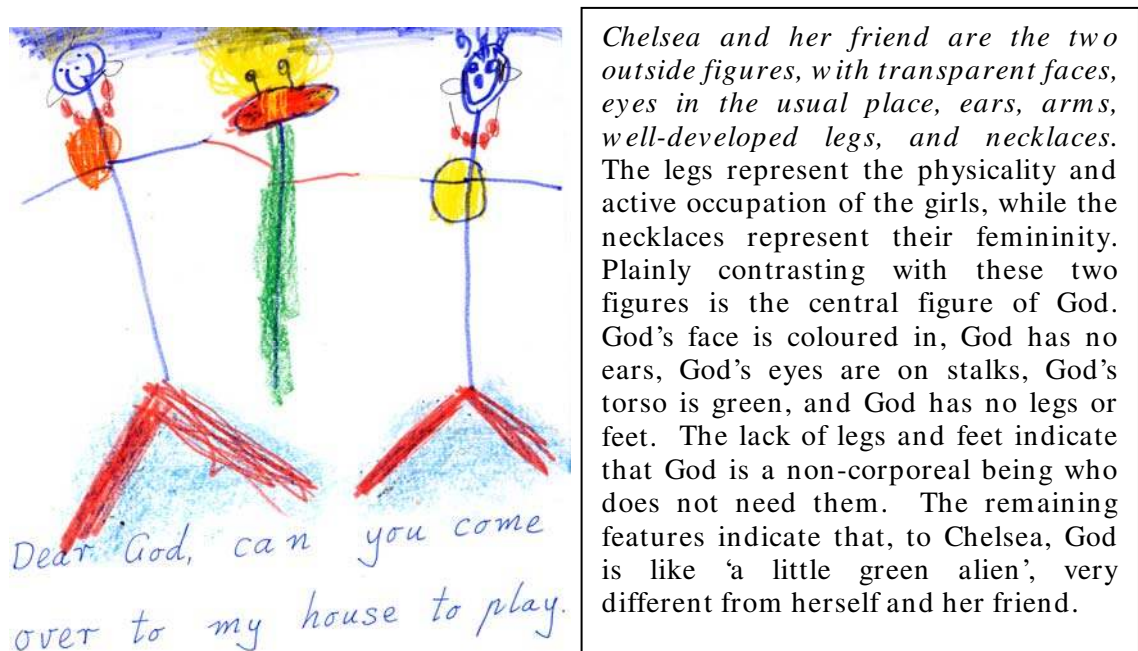 Dear God, can you come
over to my house to play.
Chelsea and her friend are the two
outside figures, with transparent faces,
eyes in the usual place, ears, arms,
well-developed legs, and necklaces.
The legs represent the physicality and
active occupation of the girls, while the
necklaces represent their femininity.
Plainly contrasting with these two
figures is the central figure of God.
God's face is coloured in, God has no
ears, God's eyes are on stalks, God's
torso is green, and God has no legs or
feet. The lack of legs and feet indicate
that God is a non-corporeal being who
does not need them. The remaining
features indicate that, to Chelsea, God
is like ‘a little green alien’, very
different from herself and her friend.